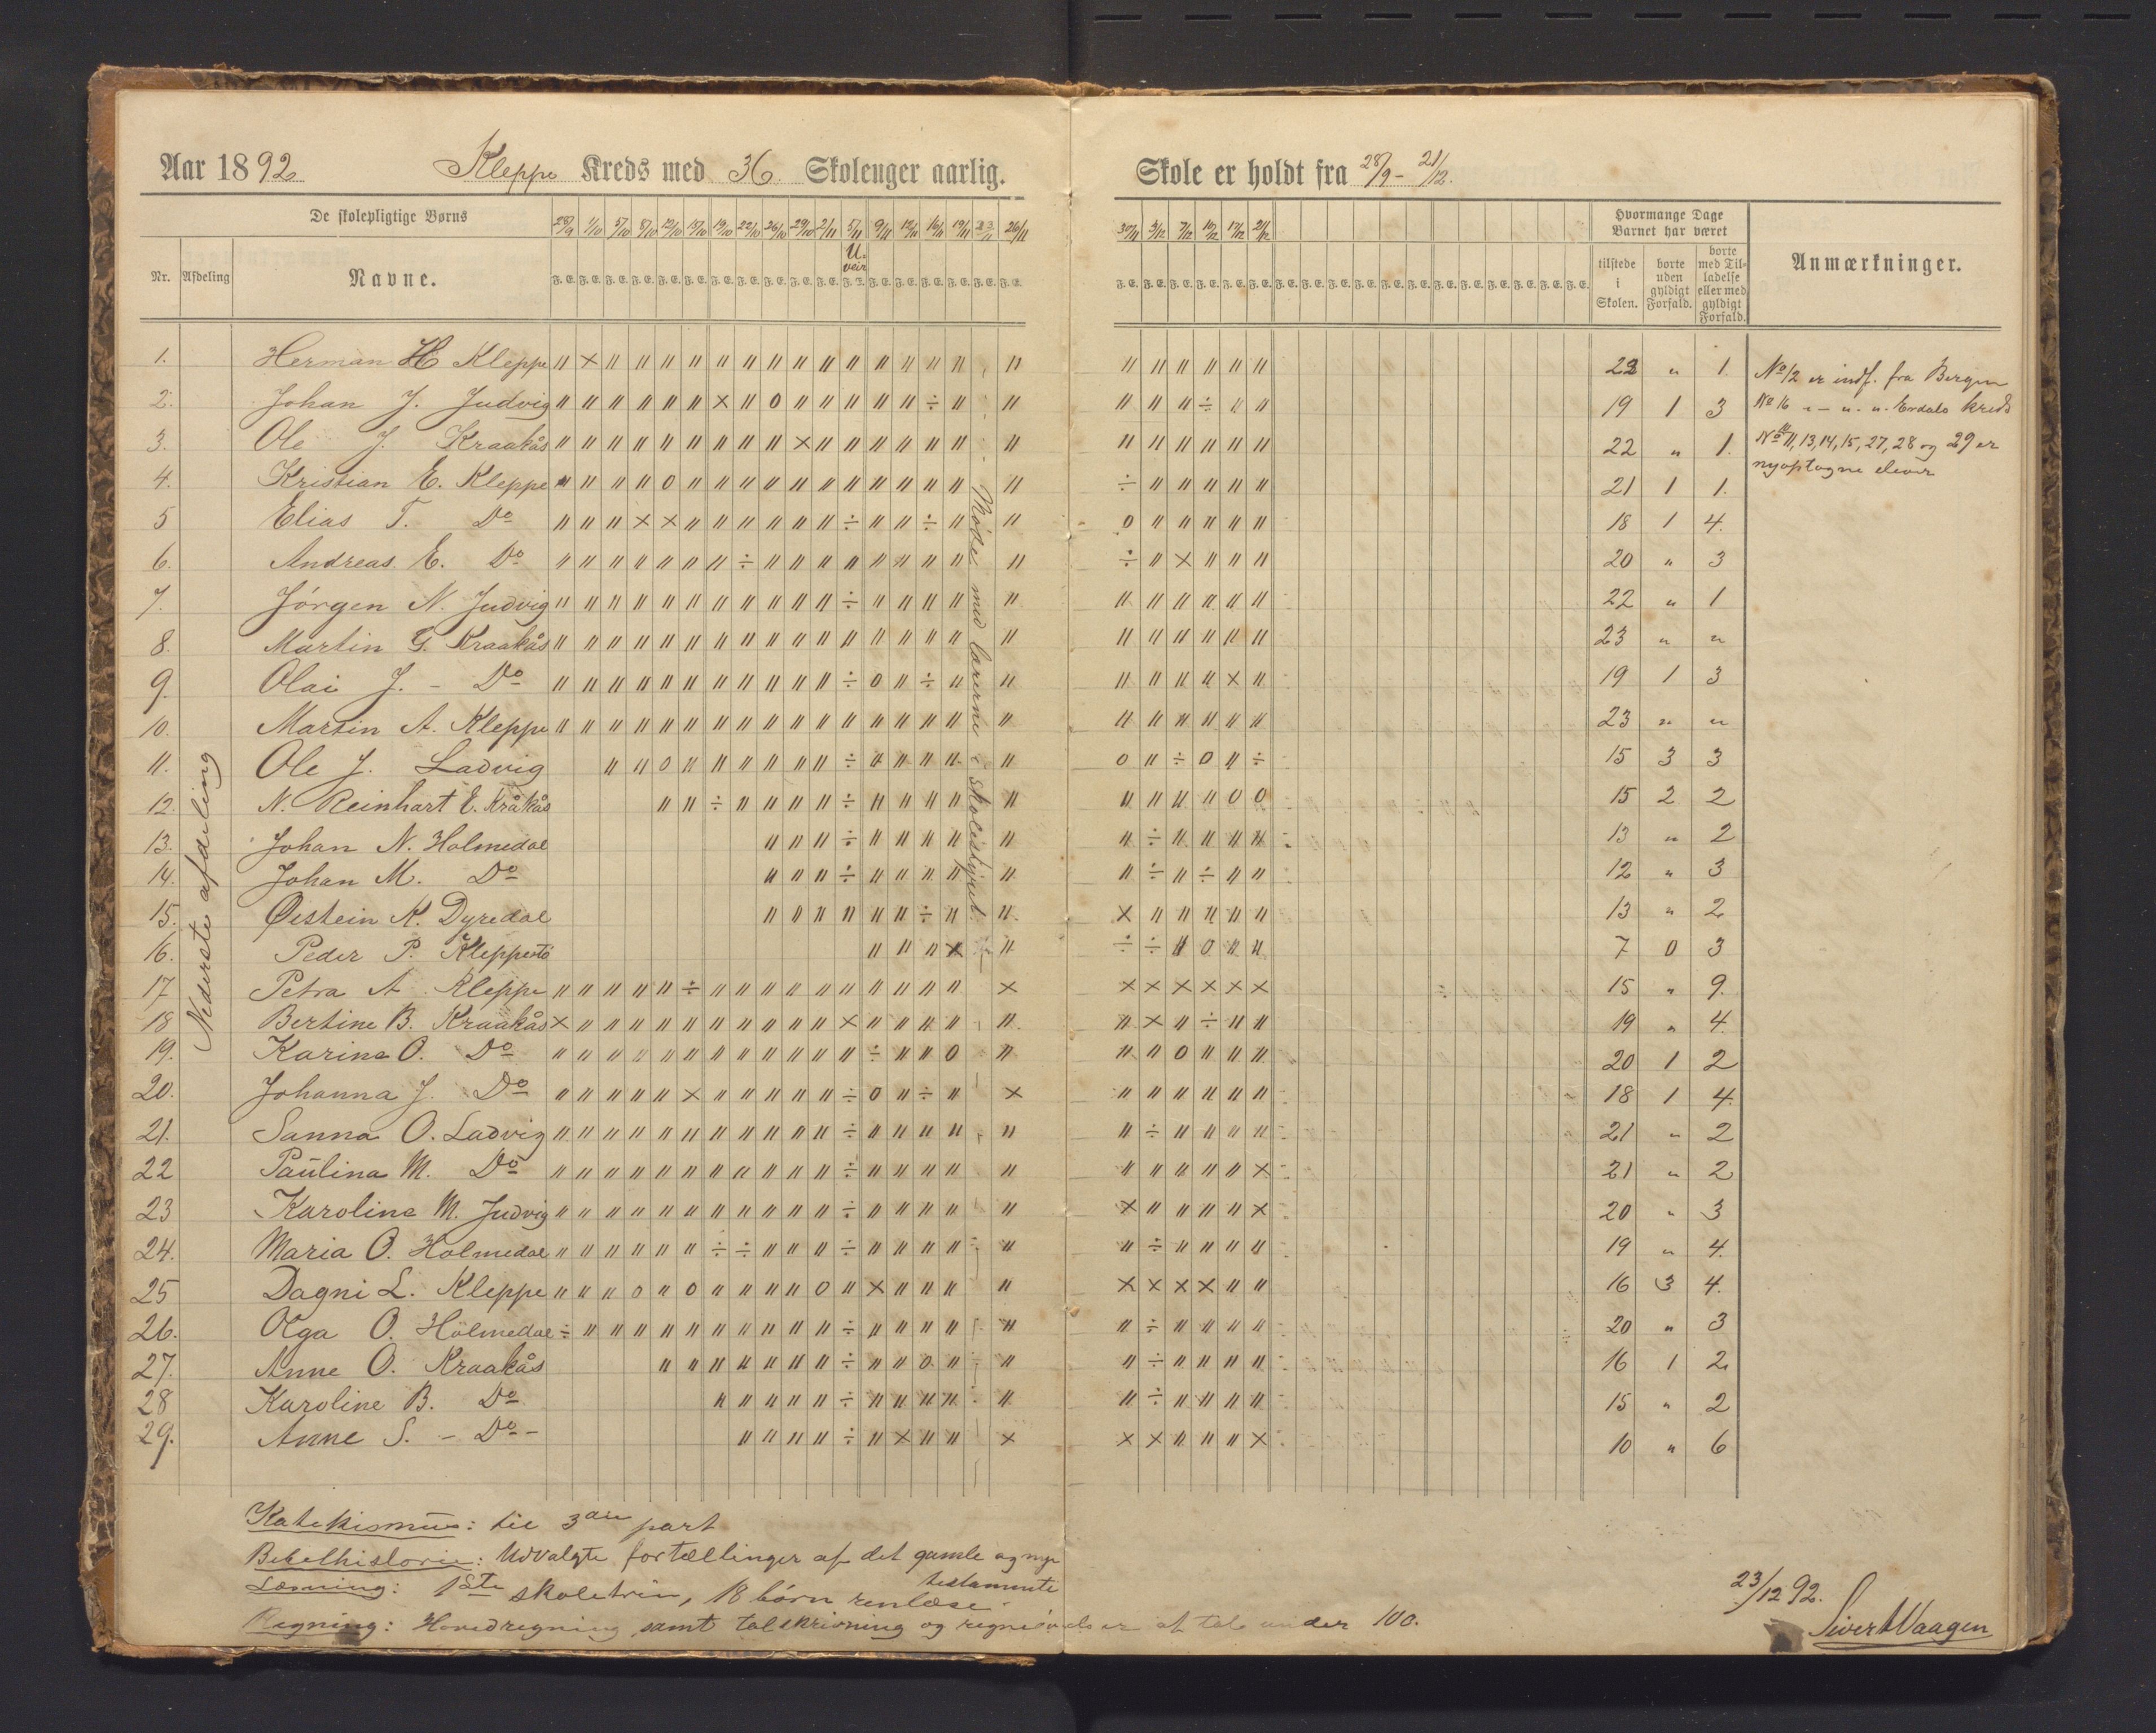 Aar 1892 Kleppe Kreds med 36 Skoleuger aarlig. Skole er holdt fra 28/9 - 21/12.
De skolepligtige Børns
28/9 1/10 5/10 8/10 12/10 15/10 19/10 22/10 26/10 29/10 2/11 5/11 9/11 12/11 16/11 19/11 23/11 26/11 30/11 3/12 7/12 10/12 17/12 21/12
Hvormange Dage Barnet har været
U. veir
Nr. Afdeling Navne.
F. E. F. E. F. E. F. E. F. E. F. E. F. E. F. E. F. E. F. E. F. E. F. E. F. E. F. E. F. E. F. E. F. E. F. E.
tilstede i Skolen.
borte uden gyldigt Forfald.
borte med Tilladelse eller med gyldigt Forfald.
Anmærkninger.
Nederste afdeling
Møde med lærerne i skolestyret.
1. Herman H Kleppe 〃 × 〃 〃 〃 〃 〃 〃 〃 〃 〃 〃 〃 〃 〃 〃 〃 〃 〃 〃 〃 〃 〃 22 〃 1.
2. Johan J. Judvig 〃 〃 〃 〃 〃 〃 × 〃 0 〃 〃 〃 〃 〃 ÷ 〃 〃 〃 〃 〃 ÷ 〃 〃 19 1 3
3. Ole J. Kraakås 〃 〃 〃 〃 〃 〃 〃 〃 〃 × 〃 〃 〃 〃 〃 〃 〃 〃 〃 〃 〃 〃 〃 22 〃 1.
4. Kristian E. Kleppe 〃 〃 〃 〃 0 〃 〃 〃 〃 〃 〃 〃 〃 〃 〃 〃 〃 ÷ 〃 〃 〃 〃 〃 21 1 1.
5 Elias T. Do 〃 〃 〃 × × 〃 〃 〃 〃 〃 〃 ÷ 〃 〃 ÷ 〃 〃 0 〃 〃 〃 〃 〃 18 1 4.
6. Andreas E. Do 〃 〃 〃 〃 〃 〃 〃 ÷ 〃 〃 〃 〃 〃 〃 〃 〃 〃 ÷ 〃 × 〃 〃 〃 20 〃 3
7. Jörgen N. Judvig 〃 〃 〃 〃 〃 〃 〃 〃 〃 〃 〃 ÷ 〃 〃 〃 〃 〃 〃 〃 〃 〃 〃 〃 22 〃 1
8. Martin G. Kraakås 〃 〃 〃 〃 〃 〃 〃 〃 〃 〃 〃 〃 〃 〃 〃 〃 〃 〃 〃 〃 〃 〃 〃 23 〃 〃
9. Olai J. - Do 〃 〃 〃 〃 〃 〃 〃 〃 〃 〃 〃 ÷ 0 〃 ÷ 〃 〃 〃 〃 〃 〃 × 〃 19 1 3
10. Martin A. Kleppe 〃 〃 〃 〃 〃 〃 〃 〃 〃 〃 〃 〃 〃 〃 〃 〃 〃 〃 〃 〃 〃 〃 〃 23 〃 〃
11. Ole J. Ladvig 〃 〃 0 〃 〃 〃 〃 〃 〃 ÷ 〃 〃 〃 〃 〃 0 〃 ÷ 0 〃 ÷ 15 3 3
12. N. Reinhart E. Kråkås 〃 〃 ÷ 〃 〃 〃 〃 ÷ 〃 〃 〃 〃 〃 〃 〃 〃 〃 0 0 15 2 2
13. Johan N. Holmedal 〃 〃 〃 ÷ 〃 〃 〃 〃 〃 〃 ÷ 〃 〃 〃 〃 13 〃 2
14. Johan M. Do 〃 〃 〃 ÷ 〃 〃 〃 〃 〃 〃 ÷ 〃 ÷ 〃 〃 12 〃 3
15. Øistein K. Dyredal 〃 〃 〃 〃 〃 〃 ÷ 〃 〃 × 〃 〃 〃 〃 〃 13 〃 2
16. Peder P. Kleppestö 〃 〃 〃 × 〃 ÷ ÷ 〃 0 〃 〃 7 0 3
17 Petra A. Kleppe 〃 〃 〃 〃 〃 ÷ 〃 〃 〃 〃 〃 〃 〃 〃 〃 〃 × × × × × × × 15 〃 9.
18 Bertine B. Kraakås × 〃 〃 〃 〃 〃 〃 〃 〃 〃 〃 × 〃 〃 〃 〃 〃 〃 × 〃 ÷ 〃 〃 19 〃 4.
19. Karine O. Do 〃 〃 〃 〃 〃 〃 〃 〃 〃 〃 〃 〃 ÷ 〃 〃 0 〃 〃 〃 0 〃 〃 〃 20 1 2
20. Johanna J. Do 〃 〃 〃 〃 〃 × 〃 〃 〃 〃 〃 ÷ 0 〃 ÷ 〃 × 〃 〃 〃 〃 〃 〃 18 1 4.
21. Sanna O. Ladvig 〃 〃 〃 〃 〃 〃 〃 〃 〃 〃 〃 ÷ 〃 〃 〃 〃 〃 〃 ÷ 〃 〃 〃 〃 21 〃 2
22 Paulina M. Do 〃 〃 〃 〃 〃 〃 〃 〃 〃 〃 〃 ÷ 〃 〃 〃 〃 〃 〃 〃 〃 〃 〃 × 21 〃 2
23 Karoline M. Judvig 〃 〃 〃 〃 〃 〃 〃 〃 〃 〃 〃 ÷ 〃 〃 〃 〃 〃 × 〃 〃 〃 〃 × 20 〃 3
24. Maria O. Holmedal 〃 〃 〃 〃 〃 〃 ÷ ÷ 〃 〃 〃 ÷ 〃 〃 〃 〃 〃 〃 ÷ 〃 〃 〃 〃 19 〃 4.
25 Dagni L. Kleppe 〃 〃 〃 0 〃 0 〃 〃 〃 〃 0 〃 × 〃 〃 〃 〃 × × × × 〃 〃 16 3 4.
26. Olga O. Holmedal ÷ 〃 〃 〃 〃 〃 〃 〃 〃 〃 〃 ÷ 〃 〃 〃 〃 〃 〃 ÷ 〃 〃 〃 〃 20 〃 3
27. Anne O. Kraakås 〃 〃 〃 〃 〃 〃 〃 ÷ 〃 〃 0 〃 〃 〃 ÷ 〃 〃 〃 〃 16 1 2
28 Karoline B. Do 〃 〃 〃 〃 〃 ÷ 〃 〃 〃 〃 〃 〃 ÷ 〃 〃 〃 〃 15 〃 2
29. Anne S. - Do - 〃 〃 〃 〃 ÷ 〃 × 〃 〃 × × × 〃 〃 〃 × 10 〃 6
No 12 er indf. fra Bergen
No 16 〃 - 〃 - 〃 Erdals kreds
No 11, 13, 14, 15, 27, 28 og 29 er
nyoptagne elever
Katekismus: til 3die part
Bibelhistorie: Udvalgte fortællinger af det gamle og nye
testamente
Læsning: 1ste skoletrin, 18 börn renlæse.
Regning: Hovedregning samt talskrivning og regneövelser af tal under 100.
23/12 92.
Sivert Vaagen